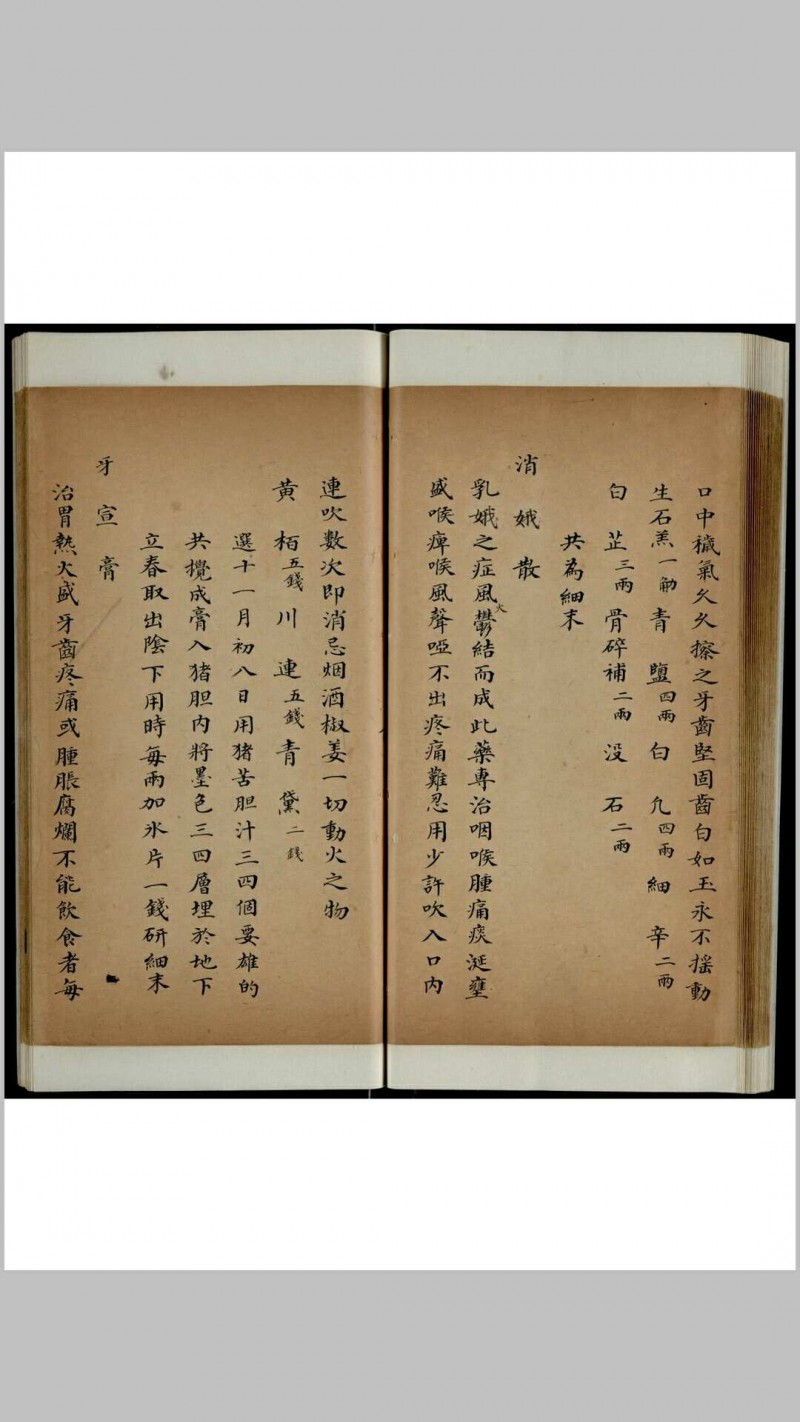 口中穢氣久久擦之牙齒堅固齒白如玉永不搖動
生石羔一觔青鹽四兩白凣四兩細辛二兩
白芷三兩骨碎補二兩沒石二兩
共為細末
消娥散
乳娥之症風火鬱結而成此藥專治咽喉腫痛痰涎壅
盛喉痺喉風聲啞不出疼痛難忍用少許吹入口內
連吹數次即消忌烟酒椒姜一切動火之物
黃栢五錢川連五錢青黛二錢
選十一月初八日用猪苦胆汁三四個要雄的
共攪成膏入猪胆內將墨色三四層埋於地下
立春取出陰下用時每兩加氷片一錢研細末
牙宣膏
治胃熱火盛牙齒疼痛或腫脹腐爛不能飲食者每